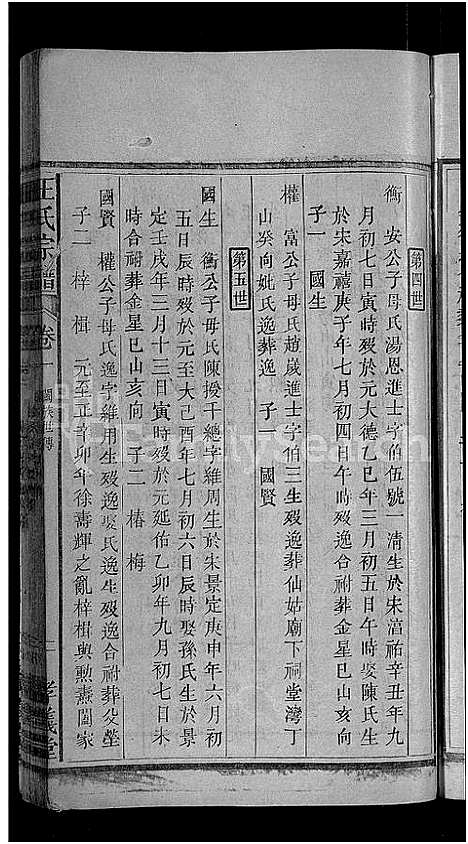 第四世
衡 安公子母氏湯恩進士字伯伍號一清生於宋淳祐辛丑年九
月初七日寅時歿於元大德乙巳年三月初五日午時娶陳氏生
於宋嘉禧庚子年七月初四日午時歿逸合祔葬金星巳山亥向
子一 國生
權 富公子母氏趙歲進士字伯三生歿逸葬仙姑廟下祠堂灣丁
山癸向妣氏逸葬逸 子一 國賢
第五世
國生 衡公子母氏陳授千總字維周生於宋景定庚申年六月初
五日辰時歿於元至大己酉年七月初六日辰時娶孫氏生於景
定壬戌年三月十三日寅時歿於元延佑乙卯年九月初七日未
時合祔葬金星巳山亥向 子二 椿 梅
國賢 權公子母氏逸字維用生歿逸娶氏逸生歿逸合祔葬父塋
子二 梓 楫 元至正辛卯年徐壽輝之亂梓楫與勲燾闔家
王氏宗譜 卷一
孝義堂
FamilySearch